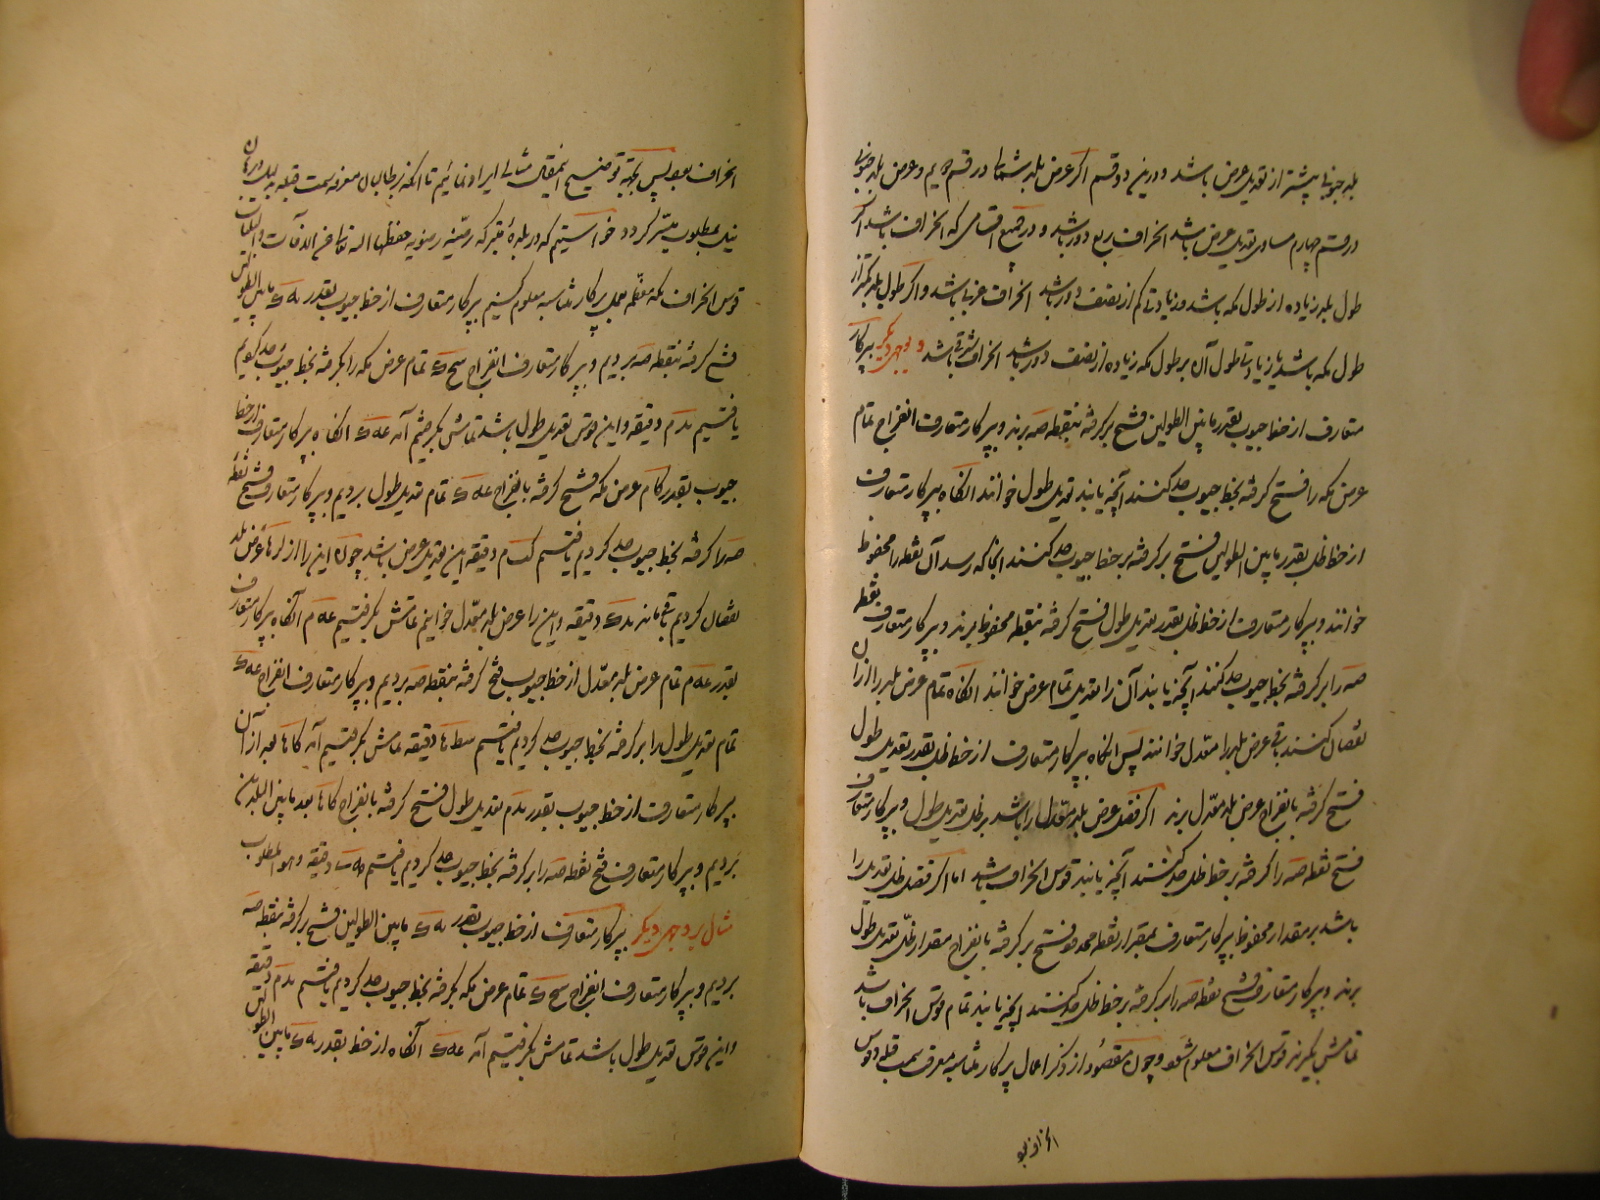 بلد جنوبی بیشتر از تعدیل عرض باشد و درین دو قسم اگر عرض بلد شمالی در قسم سیم و عرض بلد جنوبی
در قسم چهارم مساوی تعدیل عرض باشد انحراف ربع دور باشد و در جمیع اقسامی که انحراف باشد اگر
طول بلد زیاده از طول مکه باشد و زیادتی کم از نصف دور باشد انحراف غربی باشد و اگر طول بلد کمتر از
طول مکه باشد یا زیادتی طول آن بر طول مکه زیاده از نصف دور باشد انحراف شرقی باشد و بوجهی دیگر بپرکار
متعارف از خط جیوب بقدر ما بین الطولین فتح برگرفته بنقطه صه برند و بپرکار متعارف انفراج تمام
عرض مکه را فتح گرفته بخط جیوب حد کنند آنچه یابند تعدیل طول خوانند آنگاه بپرکار متعارف
از خط ظل بقدر ما بین الطولین فتح برگرفته بر خط جیوب حد کنند آنجا که رسد آن نقطه را محفوظ
خوانند و بپرکار متعارف از خط ظل بقدر تعدیل طول فتح گرفته بنقطه محفوظ برند و بپرکار متعارف نقطه
صه را برگرفته بخط جیوب حد کنند آنچه یابند آن را تعدیل تمام عرض خوانند آنگاه تمام عرض بلد را از آن
نقصان کنند باقی عرض بلد را معدل خوانند پس آنگاه بپرکار متعارف از خط ظل بقدر تعدیل طول
فتح گرفته بانفراج عرض بلد معدل برند اگر فضل عرض بلد معدل را باشد بر ظل تعدیل طول و بپرکار متعارف
فتح نقطه صه را گرفته بر خط ظل حد کنند آنچه یابند قوس انحراف باشد اما اگر فضل ظل تعدیل را
باشد بر مقدار محفوظ بپرکار متعارف بمقدار نقطه فتح برگرفته بانفراج مقدار ظل تعدیل طول
برند و بپرکار متعارف فتح نقطه صه را برگرفته بر خط ظل حد کنند آنچه یابند تمام قوس انحراف باشد
تمامش بگیرند قوس انحراف معلوم شود و چون مقصود از ذکر اعمال پرکار متناسبه معرفت سمت قبله و قوس
انحراف بود
انحراف بود پس بجهة توضیح المقال مثالی ایراد نمائیم تا آنکه بر طالبان معرفة سمت قبله
نیل بمطلوب میسر گردد خواستیم که در بلدهٔ متبرکه رضویه حفظها الله تعالی عن الآفات و البلیات
قوس انحراف مکه معظمه بعمل پرکار متناسبه معلوم کنیم بپرکار متعارف از خط جیوب بقدر ما بین الطولین
فتح گرفته بنقطه صه بردیم و بپرکار متعارف انفراج تمام عرض مکه را برگرفته بخط جیوب حد کردیم
یافتیم دقیقه و این قوس تعدیل طول باشد تمامش بگرفتیم آنگاه بپرکار متعارف از خط
جیوب بقدر تمام عرض مکه فتح گرفته بانفراج تمام تعدیل طول بردیم و بپرکار متعارف فتح نقطه
صه را گرفته بخط جیوب حد کردیم یافتیم دقیقه این تعدیل عرض باشد چون این را از عرض بلد
نقصان کردیم باقی ماند دقیقه و این را عرض بلد معدل خوانیم تمامش بگرفتیم آنگاه بپرکار متعارف
بقدر تمام عرض بلد معدل از خط جیوب فتح گرفته بنقطه صه بردیم و بپرکار متعارف انفراج
تمام تعدیل طول را برگرفته بخط جیوب حد کردیم یافتیم دقیقه تمامش بگرفتیم بعد از آن
بپرکار متعارف از خط جیوب بقدر تعدیل طول فتح گرفته بانفراج بعد ما بین البلدین
بردیم و بپرکار متعارف فتح نقطه صه را برگرفته بخط جیوب حد کردیم یافتیم دقیقه و هو المطلوب
مثال بوجهی دیگر بپرکار متعارف از خط جیوب بقدر ما بین الطولین فتح برگرفته بنقطه صه
بردیم و بپرکار متعارف انفراج تمام عرض مکه برگرفته بخط جیوب حد کردیم یافتیم دقیقه
و این قوس تعدیل طول باشد تمامش بگرفتیم آنگاه از خط بقدر ما بین الطولین